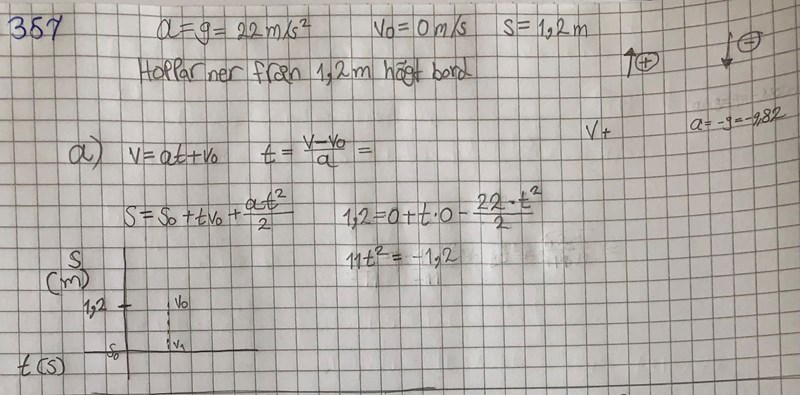 357 a = g = 22 m/s² v₀ = 0 m/s s = 1,2 m
Hoppar ner från 1,2 m högt bord
↑ + ↓ -
v+ a = -g = -9,82
a) v = at + v₀ t = (v - v₀)/a =
s = s₀ + tv₀ + at²/2 1,2 = 0 + t·0 - 22·t²/2
11t² = -1,2
s
(m)
1,2 v₀
s₀ v₁
t(s)